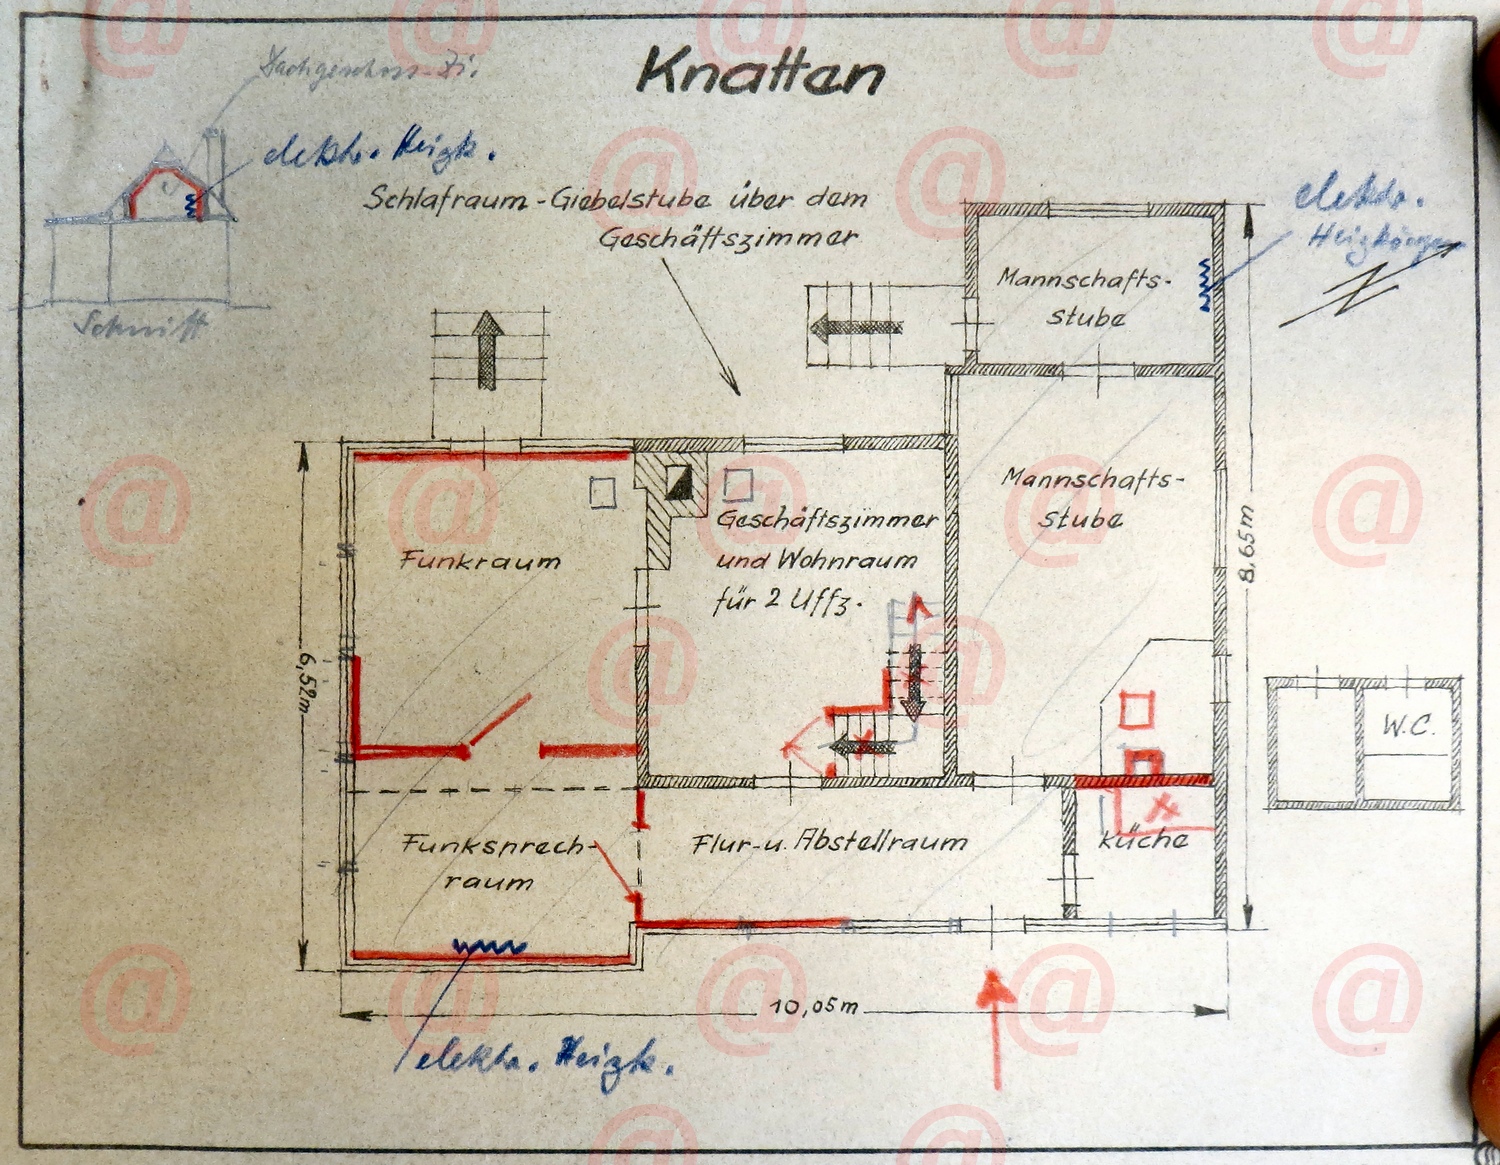 Knatten
Dachgeschoss-Zi.
elektr. Heizk.
Schlafraum-Giebelstube über dem
Geschäftszimmer
elektr.
Heizkörper
Schnitt
Mannschafts-
stube
Mannschafts-
stube
Funkraum
Geschäftszimmer
und Wohnraum
für 2 Uffz.
8,65m
6,52m
W.C.
Funksprech-
raum
Flur-u. Abstellraum
Küche
10,05m
elektr. Heizk.